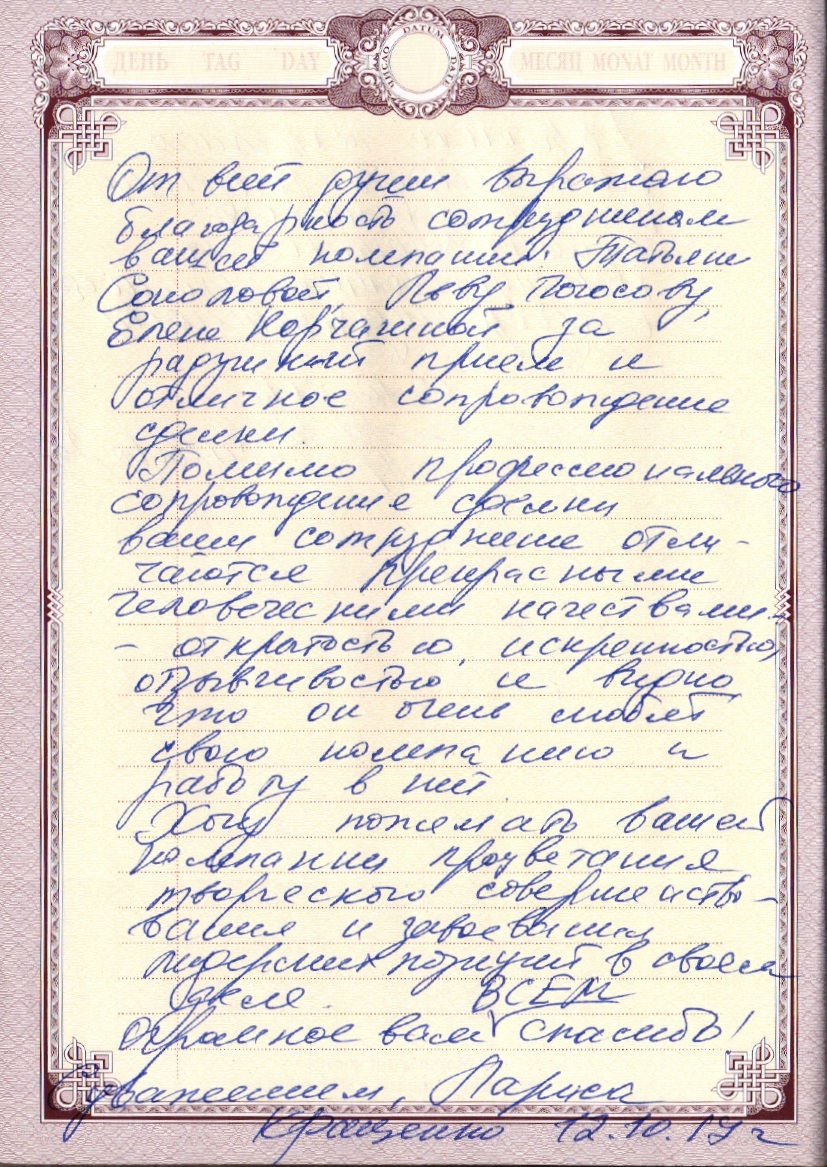 ДЕНЬ TAG DAY ЧИСЛО DATUM DATE МЕСЯЦ MONAT MONTH
От всей души выражаю
благодарность сотрудникам
вашей компании: Татьяне
Соколовой, Льву Погосову,
Елене Корчагиной за
радушный прием и
отличное сопровождение
сделки
Помимо профессионального
сопровождение сделки
ваши сотрудники отли-
чаются прекрасными
человеческими качествами -
- открытостью, искренностью,
отзывчивостью и видно
что они очень любят
свою компанию и
работу в ней.
Хочу пожелать вашей
компании процветания
творческого совершенство-
вания и завоевания
лидерских позиций в своем
деле. ВСЕМ
огромное вам спасибо!
С уважением, Лариса
12.10.19г